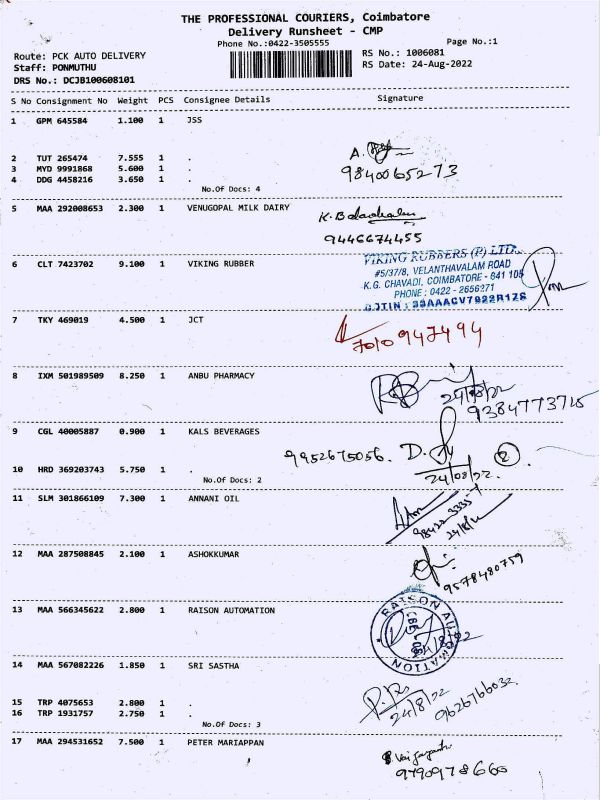 THE PROFESSIONAL COURIERS, Coimbatore
Delivery Runsheet - CMP
Phone No.:0422-3505555 Page No.:1
Route: PCK AUTO DELIVERY RS No.: 1006081
Staff: PONMUTHU RS Date: 24-Aug-2022
DRS No.: DCJB100608101
S No Consignment No Weight PCS Consignee Details Signature
1 GPM 645584 1.100 1 JSS
2 TUT 265474 7.555 1 .
3 MYD 9991868 5.600 1 .
4 DDG 4458216 3.650 1 .
9840065273
No.Of Docs: 4
5 MAA 292008653 2.300 1 VENUGOPAL MILK DAIRY
9446674455
VIKING RUBBERS (P) LTD.
6 CLT 7423702 9.100 1 VIKING RUBBER
#5/37/8, VELANTHAVALAM ROAD
K.G. CHAVADI, COIMBATORE - 641 105
PHONE : 0422 - 2656271
GSTIN : 33AAACV7922R1Z8
7 TKY 469019 4.500 1 JCT
7010947494
8 IXM 501989509 8.250 1 ANBU PHARMACY
24/8/22
9384773715
9 CGL 40005887 0.900 1 KALS BEVERAGES
9952675056. D.
2
10 HRD 369203743 5.750 1 .
24/08/22.
No.Of Docs: 2
11 SLM 301866109 7.300 1 ANNANI OIL
12 MAA 287508845 2.100 1 ASHOKKUMAR
9578480759
13 MAA 566345622 2.800 1 RAISON AUTOMATION
RAISON AUTOMATION
14 MAA 567082226 1.850 1 SRI SASTHA
15 TRP 4075653 2.800 1 .
24/8/22 9626766032.
16 TRP 1931757 2.750 1 .
No.Of Docs: 3
17 MAA 294531652 7.500 1 PETER MARIAPPAN
9790978660